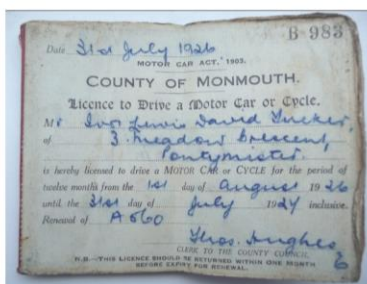 B 983
Date 31st July 1926
MOTOR CAR ACT, 1903.
COUNTY OF MONMOUTH.
Licence to Drive a Motor Car or Cycle.
Mr Ivor Lewis David Tucker,
of 3, Meadow Crescent,
Pontymister.
is hereby licensed to drive a MOTOR CAR or CYCLE for the period of
twelve months from the 1st day of August 1926
until the 31st day of July 1927 inclusive.
Renewal of A560
Thos. Hughes
CLERK TO THE COUNTY COUNCIL.
N.B.—THIS LICENCE SHOULD BE RETURNED WITHIN ONE MONTH
BEFORE EXPIRY FOR RENEWAL.